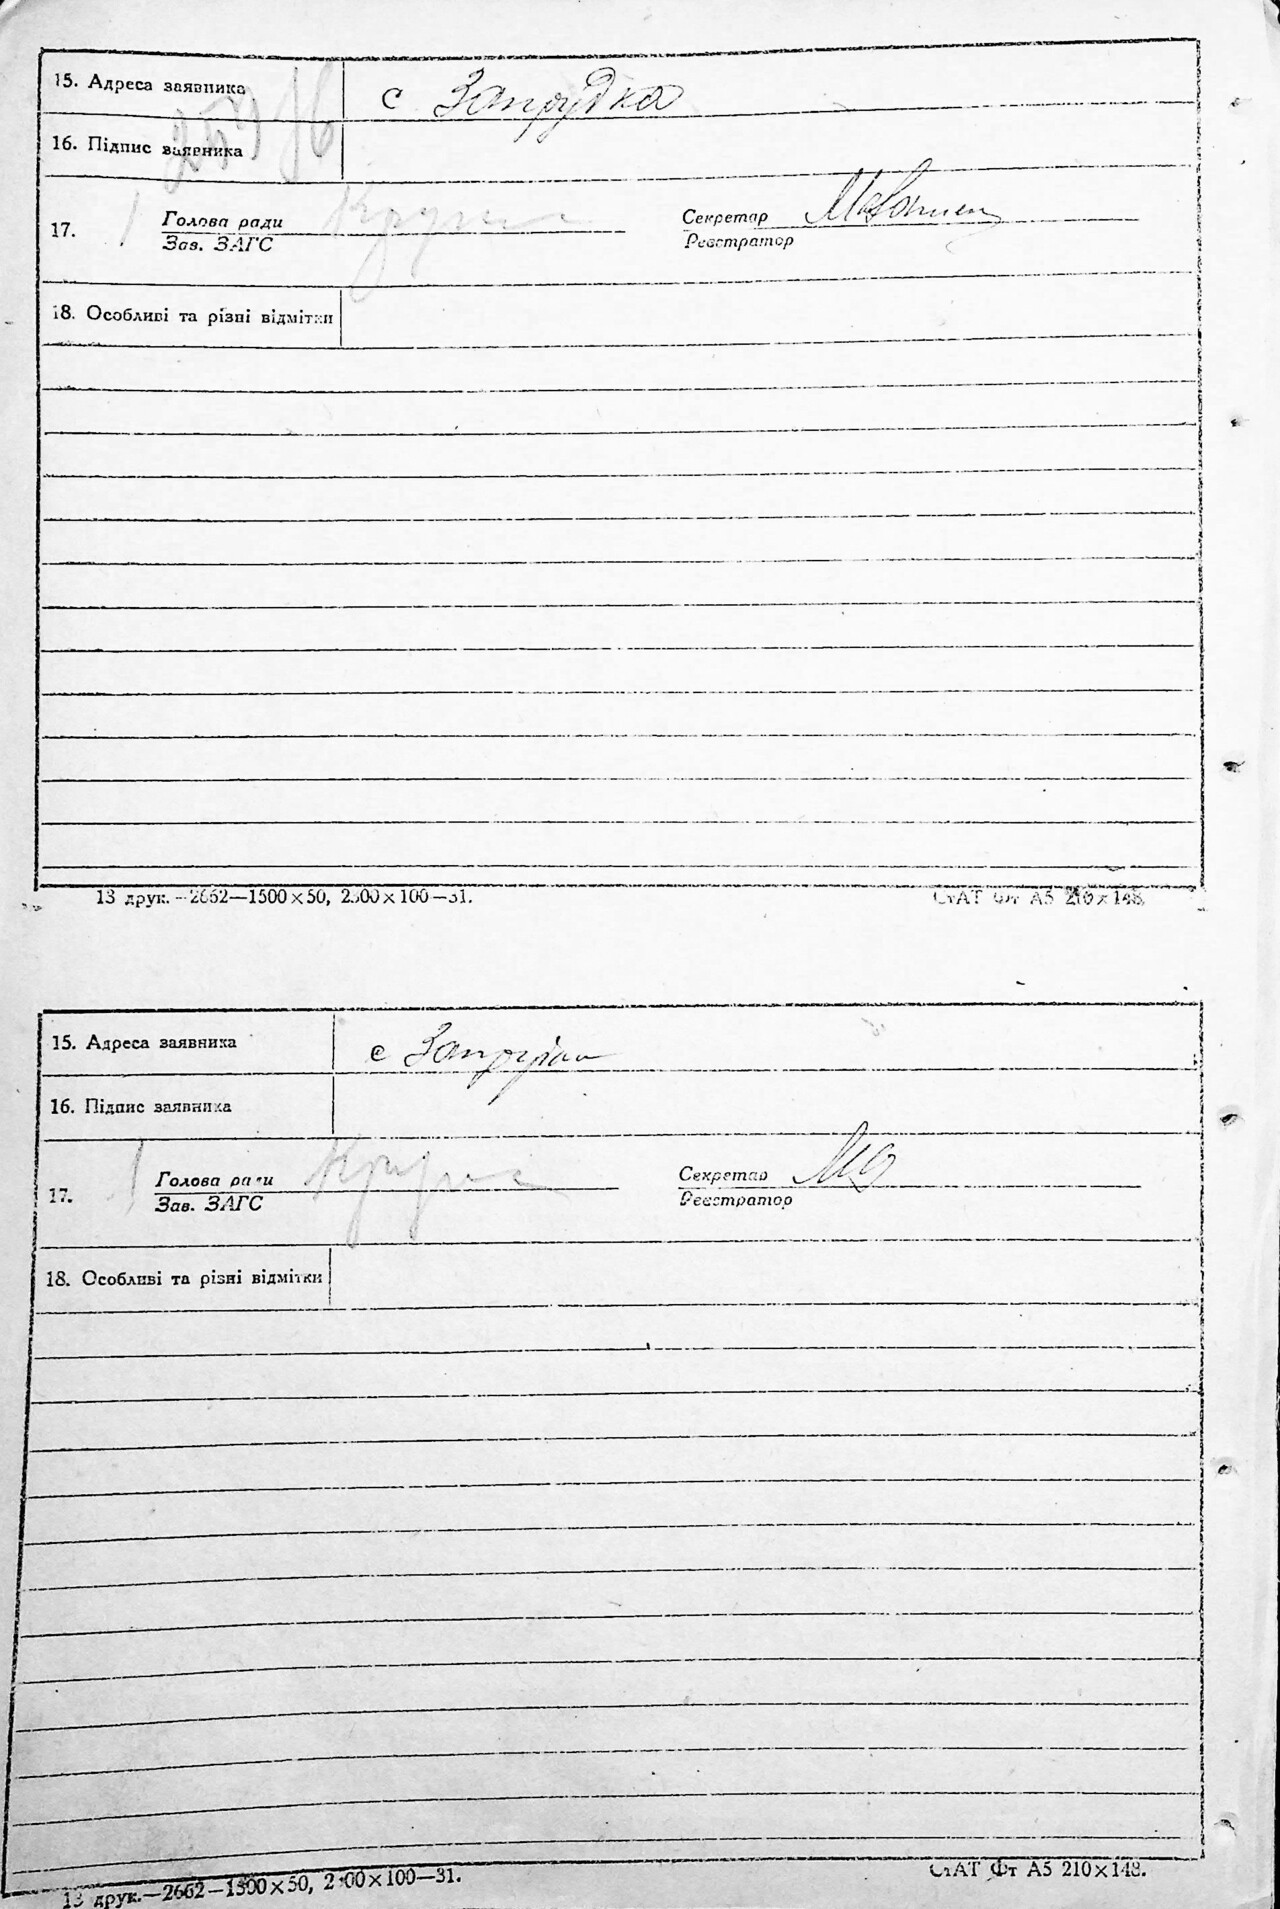 15. Адреса заявника с Запрудка
16. Підпис заявника
17. Голова ради Секретар
Зав. ЗАГС Реєстратор
18. Особливі та різні відмітки
13 друк.—2662—1500×50, 2500×100—31.
СтАТ Фт А5 210×148.
15. Адреса заявника с
16. Підпис заявника
17. Голова ради Секретар
Зав. ЗАГС Реєстратор
18. Особливі та різні відмітки
13 друк.—2662—1500×50, 2500×100—31.
СтАТ Фт А5 210×148.